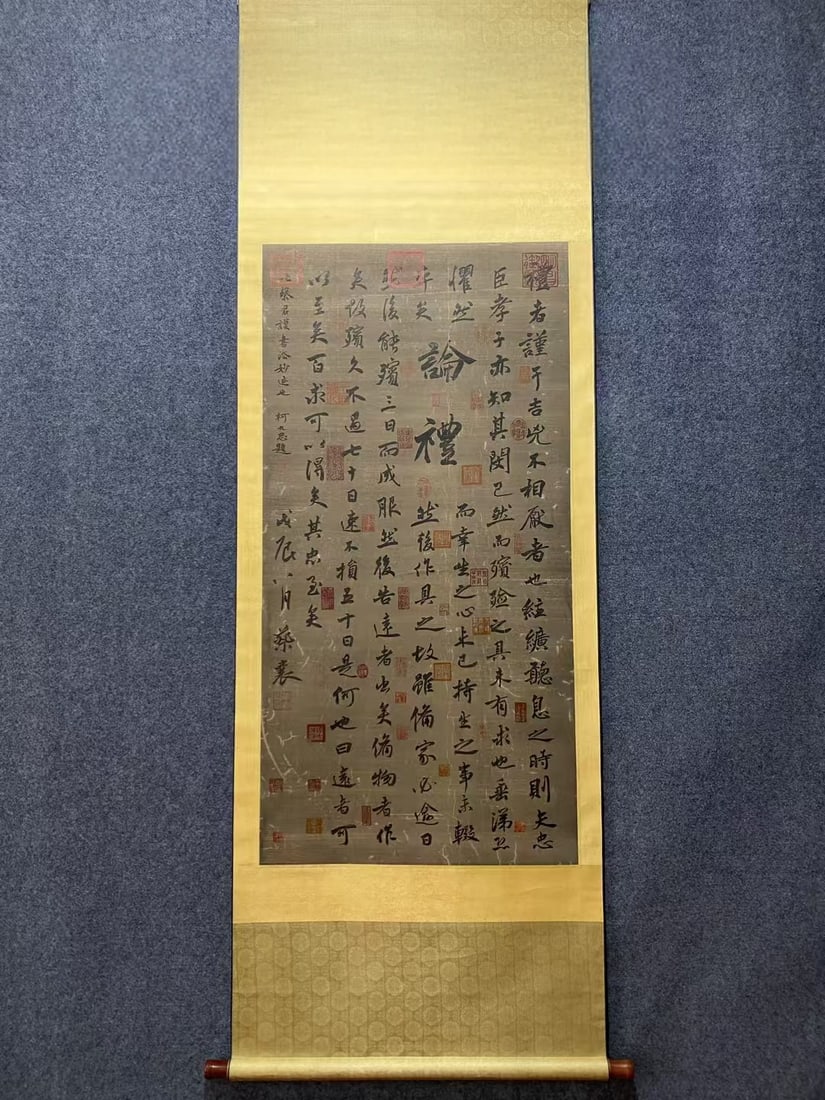 禮者謹于吉兇不相厭者也紸纊聽息之時則夫忠
臣孝子亦知其閔已然而殯殮之具未有求也垂涕恐
懼然而幸生之心未已持生之事未輟
論禮
乎矣然後作具之故雖備家必逾日
然後能殯三日而成服然後告遠者出矣備物者作
矣故殯久不過七十日速不損五十日是何也曰遠者可
以至矣百求可以得矣其忠至矣
戊辰八月蔡襄
蔡君謨書洽妙迹也 柯九思題